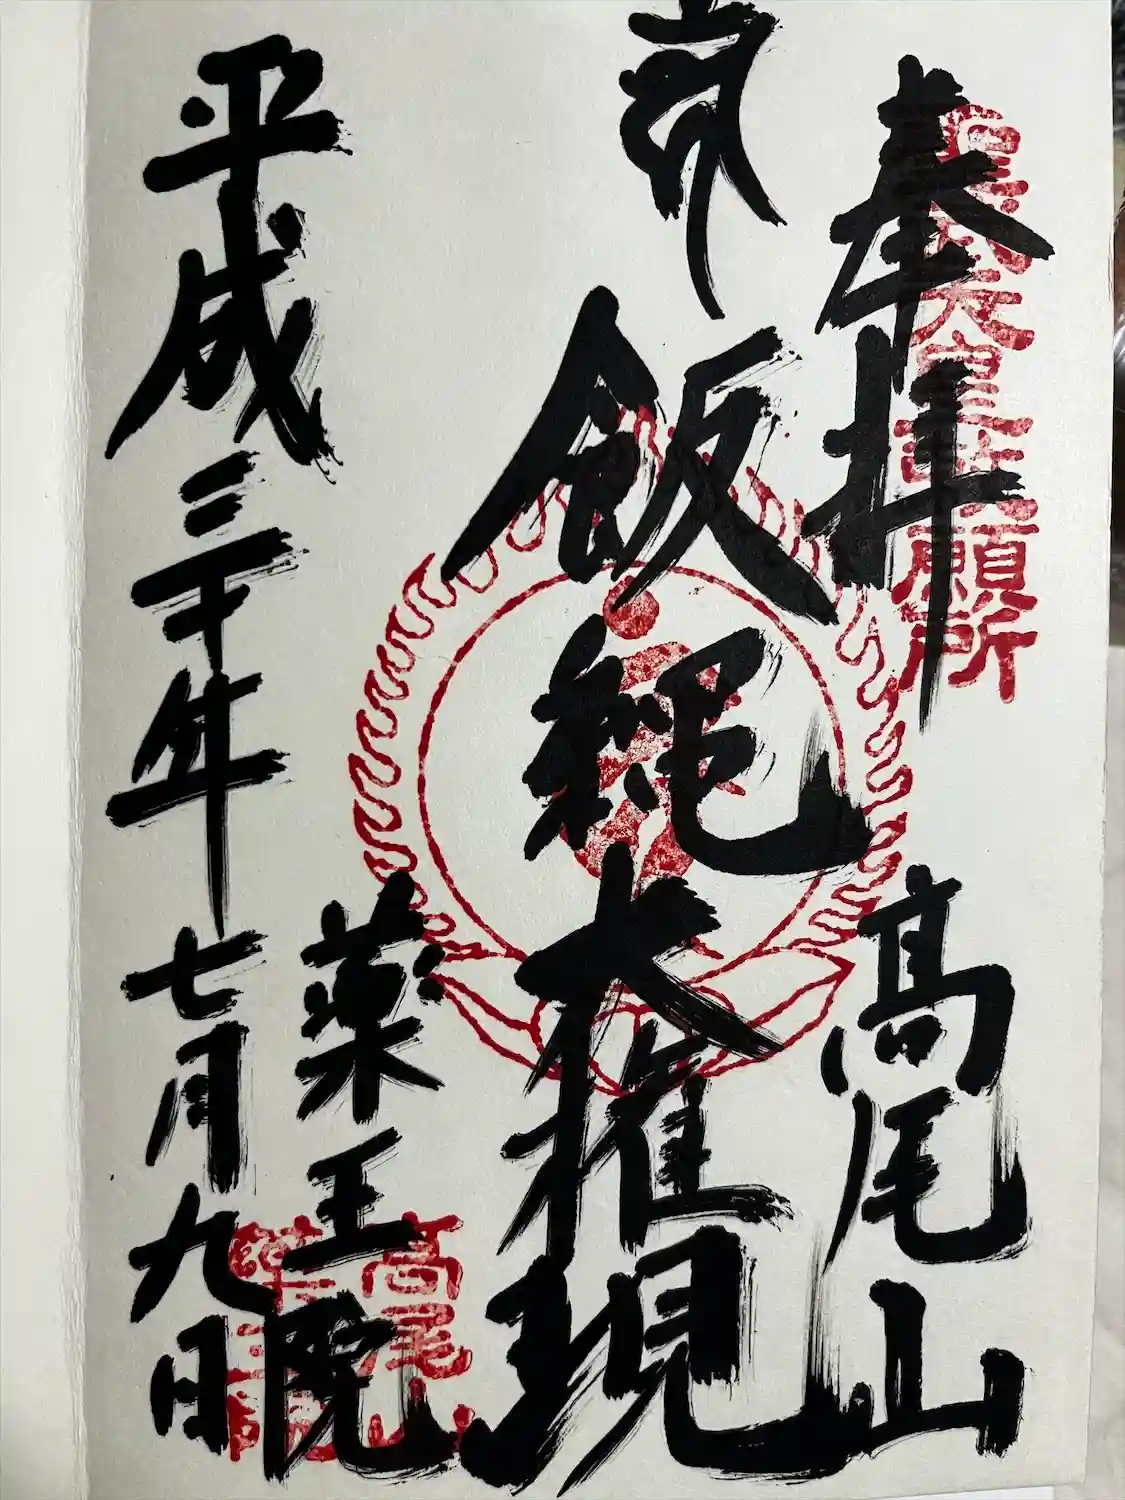 奉拝
高尾山
飯縄大権現
薬王院
平成三十年七月九日
聖武天皇勅願所
高尾山
薬王院